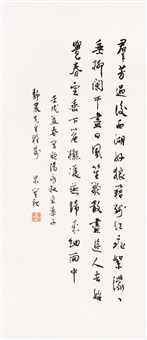 羣芳過後西湖好狼籍殘紅飛絮濛〻
垂柳闌干盡日風笙歌散盡遊人去始
覺春空垂下簾櫳雙燕歸來細雨中
壬戌春歐陽永叔采桑子
農先生雅